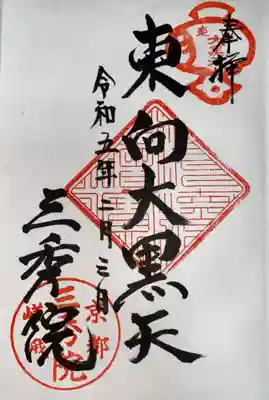 奉拝
東向大黒天
令和五年二月三日
三秀院
京都
嵯峨
三秀院